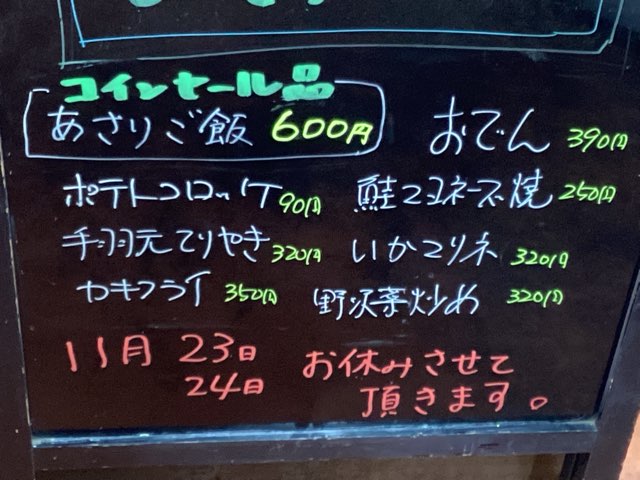 コインセール品
あさりご飯 600円
おでん 390円
ポテトコロッケ 90円
鮭マヨネーズ焼 250円
手羽元てりやき 320円
いかマリネ 320円
カキフライ 350円
野沢菜炒め 320円
11月 23日
24日
お休みさせて
頂きます。